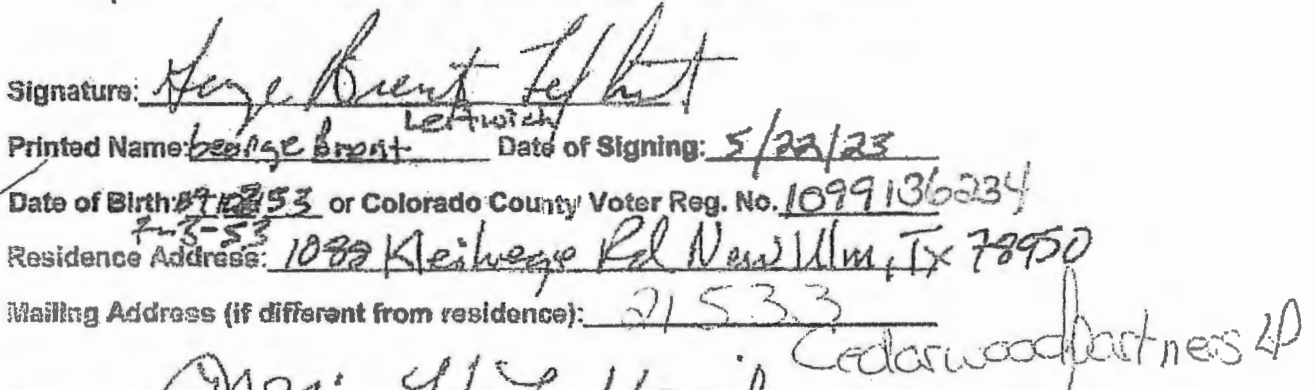 Signature: George Brent
Leftwich
Printed Name: George Brent Date of Signing: 5/22/23
Date of Birth: or Colorado County Voter Reg. No. 1099136234
7-3-53
Residence Address: 1088 Rd New Ulm, Tx 78950
Mailing Address (if different from residence): 21533
Cedarwood Partners LP